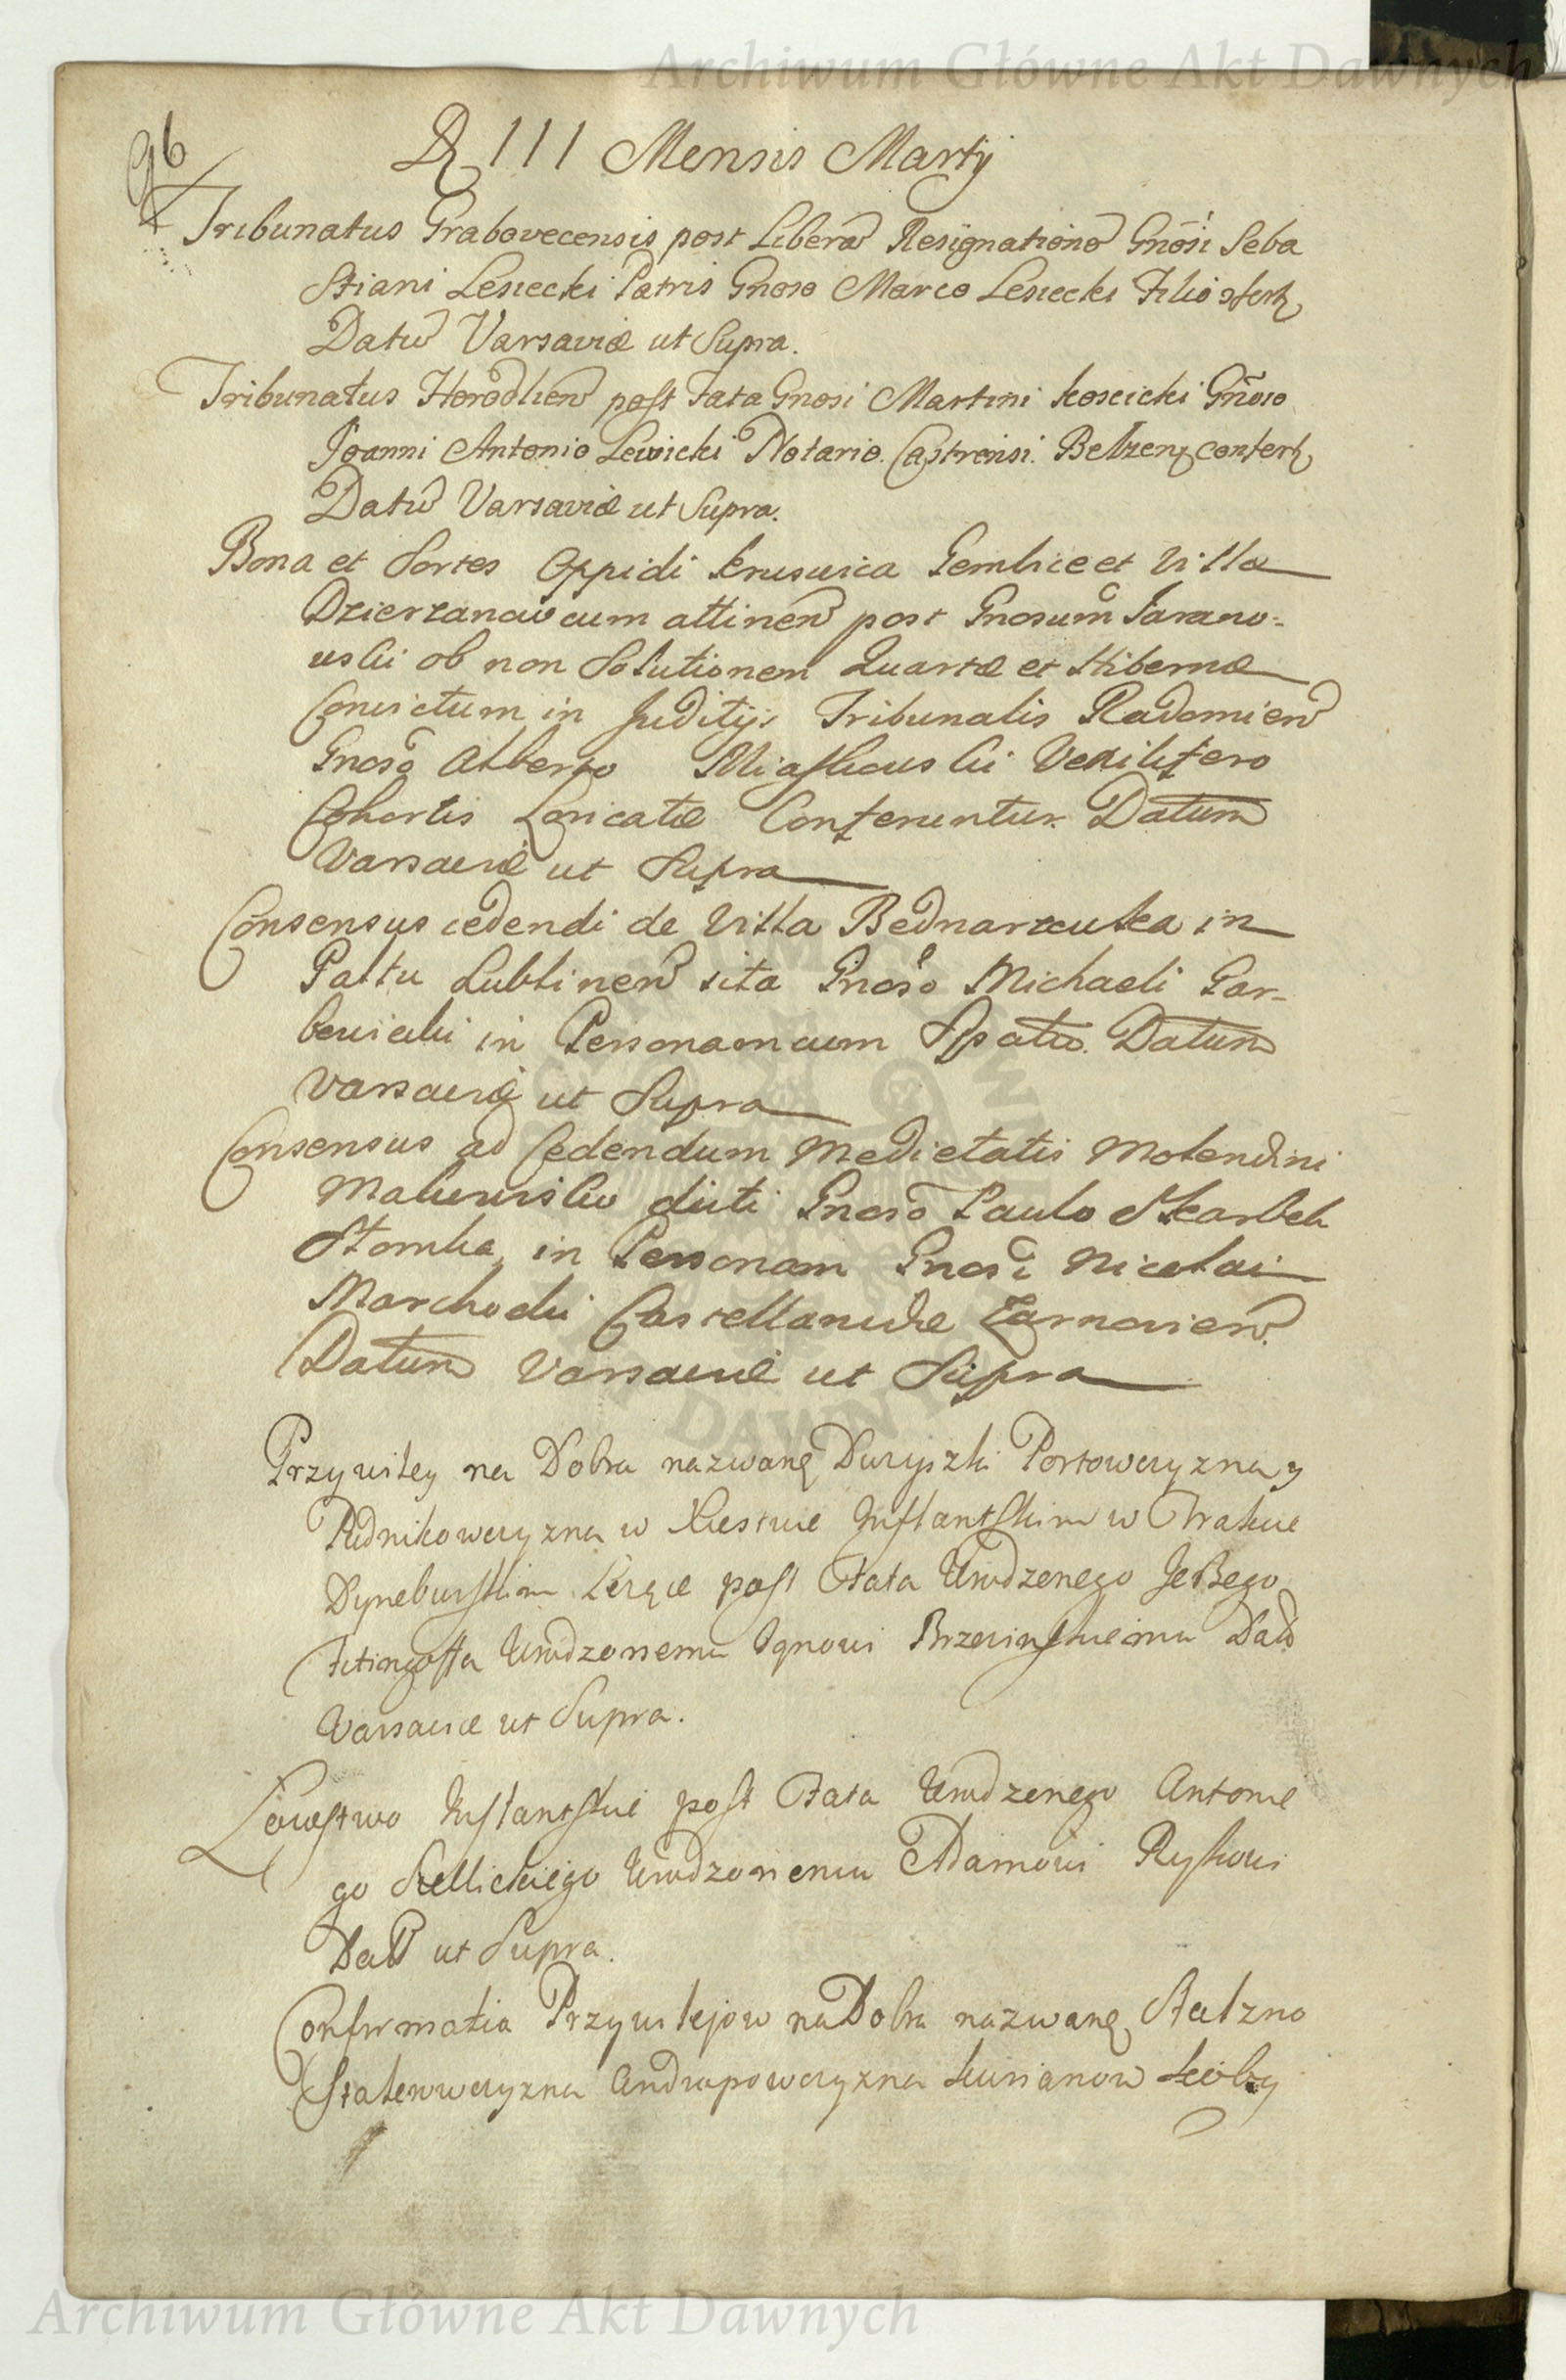 Archiwum Główne Akt Dawnych
96
D. III Mensis Martij
Tribunatus Grabovecensis post Liberā Resignationē Gnōsi Seba
stiani Lesiecki Patris Gnoso Marco Lesiecki Filio sfert,
Datū Varsaviæ ut Supra.
Tribunatus Horodlien post Fata Gnosi Martini Koscicki Gnōso
Joanni Antonio Lewicki Notario Castrensi Belzen, confert,
Datū Varsaviæ ut Supra.
Bona et Sortes Oppidi Kruswica Gembice et Villa
Dzierzanow cum attinen post Gnosum Jarano-
wski ob non Solutionem Quartæ et Hibernæ
Convictum in Juditijs Tribunalis Radomien
Gnoso Alberto Miaskowski Vexilifero
Cohortis Loricatæ Conferuntur. Datum
Varsaviæ ut Supra
Consensus cedendi de Villa Bednarzowka in
Paltu Lublinen sita Gnoso Michaeli Gar-
bowicki in Personam cum Spatio. Datum
Varsaviæ ut Supra
Consensus ad Cedendum Medietatis Molendini
dicti Gnoso Paulo Skarbek
Slomka, in Personam Gnosi Nicolai
Marchocki Castellanidæ Zarnovien.
Datum Varsaviæ ut Supra
Przywiley na Dobra nazwane Duryszki Portoweryzna y
Rudnikoweryzna w Xięstwie Inflantskim w Trakcie
Dyneburskim Leżące post Fata Urodzonego
Fitingoffa Urodzonemu Brzezinskiemu Datt
Varsaviæ ut Supra.
Łowestwo Inflantskie post Fata Urodzonego Antonie
go Szellickiego Urodzonemu Adamowi Rykowi
Datt ut Supra.
Confirmatia Przywilejow na Dobra nazwane Stalzno
Andrapoweryzna
Archiwum Główne Akt Dawnych